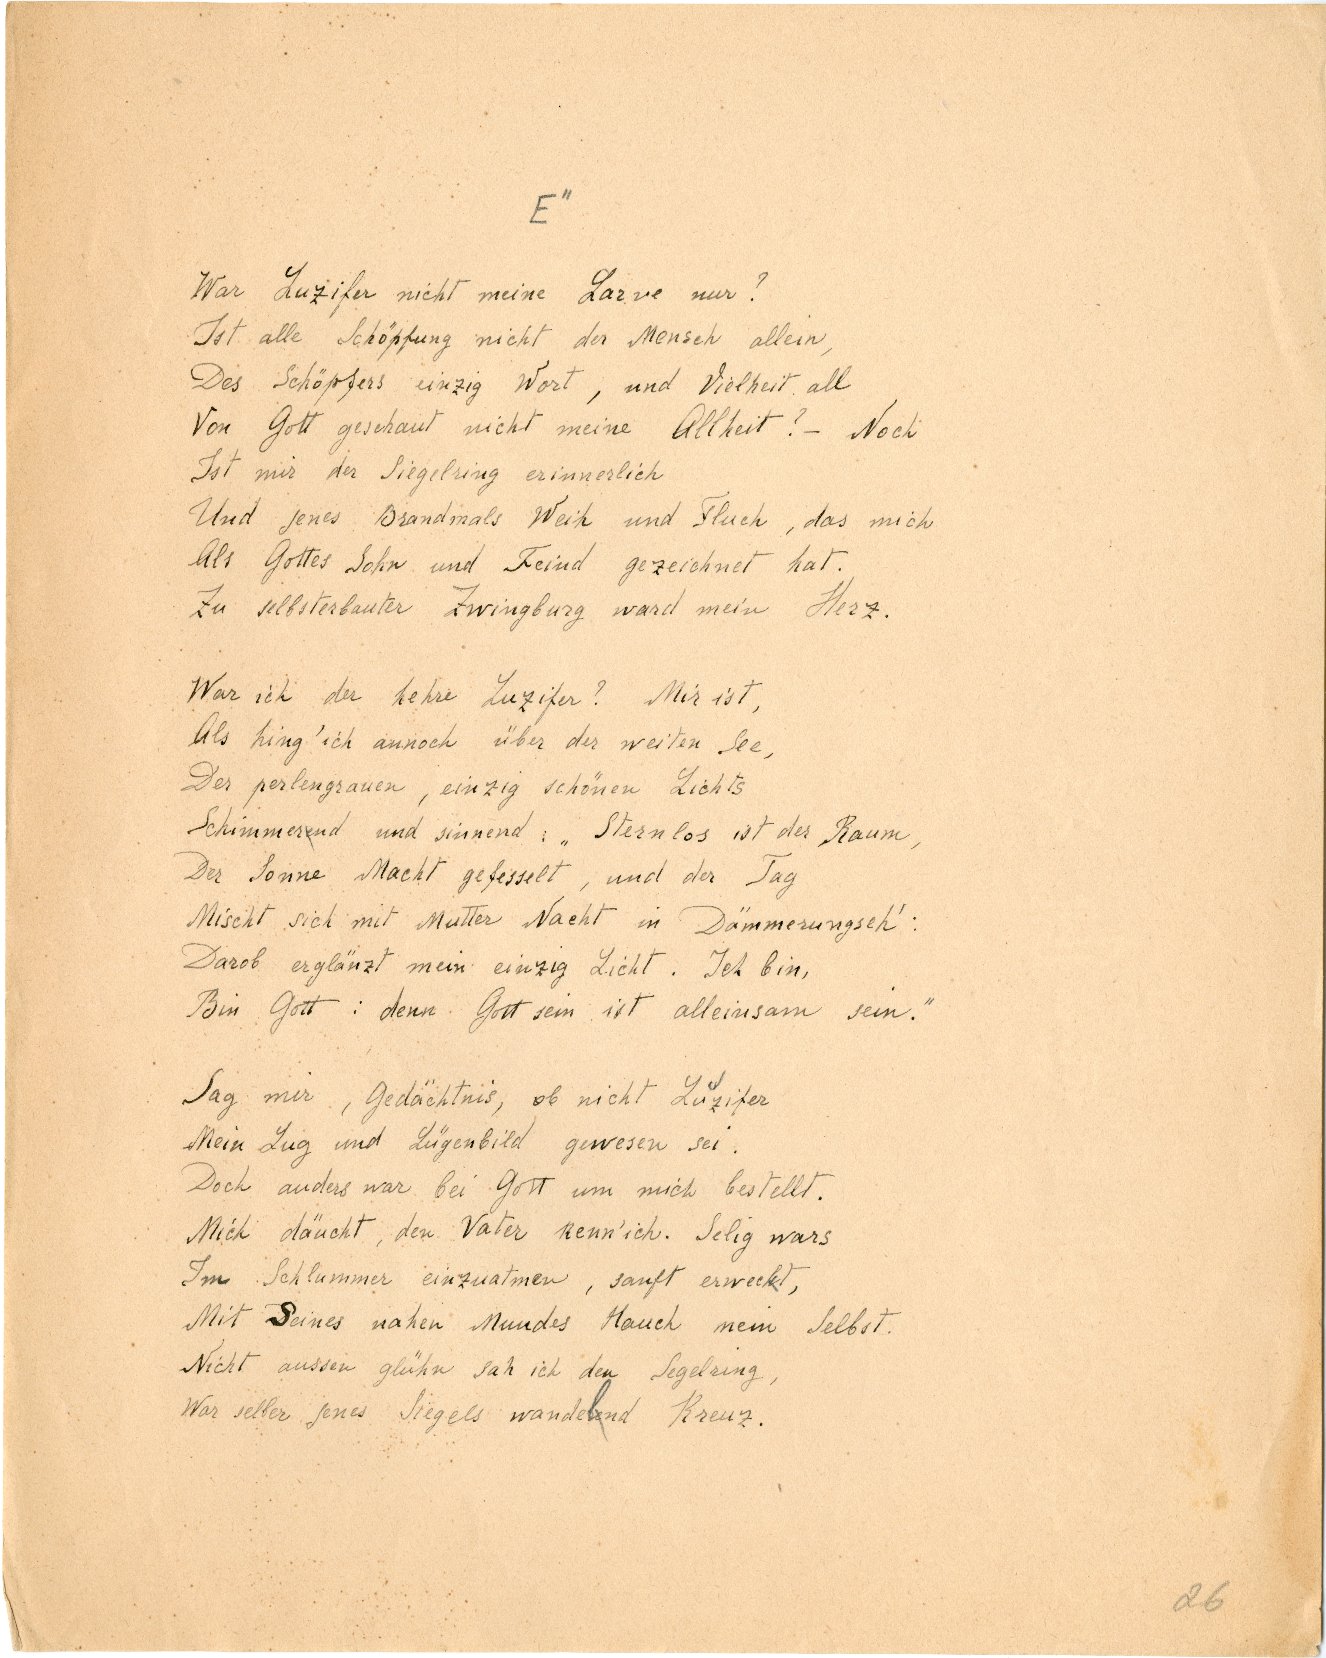 E"
War Luzifer nicht meine Larve nur?
Ist alle Schöpfung nicht der Mensch allein,
Des Schöpfers einzig Wort, und Vielheit all
Von Gott geschaut nicht meine Allheit? – Noch
Ist mir der Siegelring erinnerlich
Und jenes Brandmals Weih und Fluch, das mich
Als Gottes Sohn und Feind gezeichnet hat.
Zu selbsterbauter Zwingburg ward mein Herz.
War ich der hehre Luzifer? Mir ist,
Als hing' ich annoch über der weiten See,
Der perlengrauen, einzig schönen Lichts
Schimmernd und sinnend: „Sternlos ist der Raum,
Der Sonne Macht gefesselt, und der Tag
Mischt sich mit Mutter Nacht in Dämmerungseh':
Darob erglänzt mein einzig Licht. Ich bin,
Bin Gott: denn Gott sein ist alleinsam sein."
Sag mir, Gedächtnis, ob nicht Luzifer
Mein Lug und Lügenbild gewesen sei.
Doch anders war bei Gott um mich bestellt.
Mich däucht, den Vater kenn' ich. Selig wars
Im Schlummer einzuatmen, sanft erweckt,
Mit Seines nahen Mundes Hauch mein Selbst.
Nicht aussen glühn sah ich den Segelring,
War selber jenes Siegels wandelnd Kreuz.
26